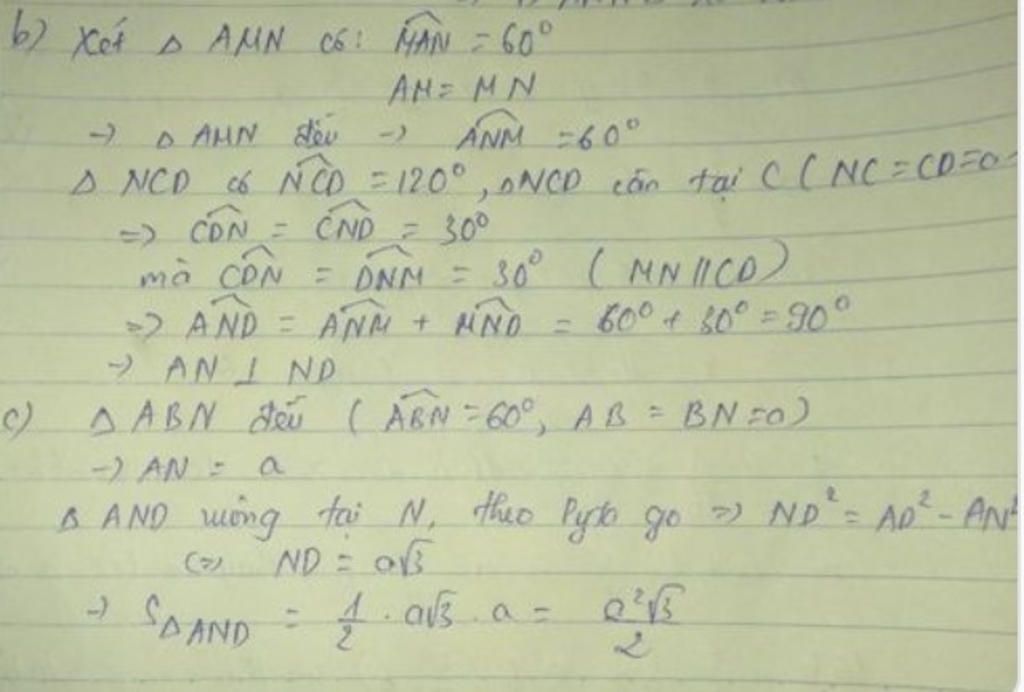 b) Xét Δ AMN có: $\widehat{MAN}$ = 60°
AM = MN
→ Δ AMN đều → $\widehat{ANM}$ = 60°
Δ NCD có $\widehat{NCD}$ = 120°, Δ NCD cân tại C ( NC = CD = a
=> $\widehat{CDN}$ = $\widehat{CND}$ = 30°
mà $\widehat{CDN}$ = $\widehat{DNM}$ = 30° ( MN // CD )
=> $\widehat{AND}$ = $\widehat{ANM}$ + $\widehat{MND}$ = 60° + 30° = 90°
→ AN ⊥ ND
c) Δ ABN đều ( $\widehat{ABN}$ = 60°, AB = BN = a )
→ AN = a
Δ AND vuông tại N, theo Pytago => ND² = AD² - AN²
<=> ND = a√3
→ S_{ΔAND} = $\frac{1}{2}$ . a√3 . a = $\frac{a^2\sqrt{3}}{2}$